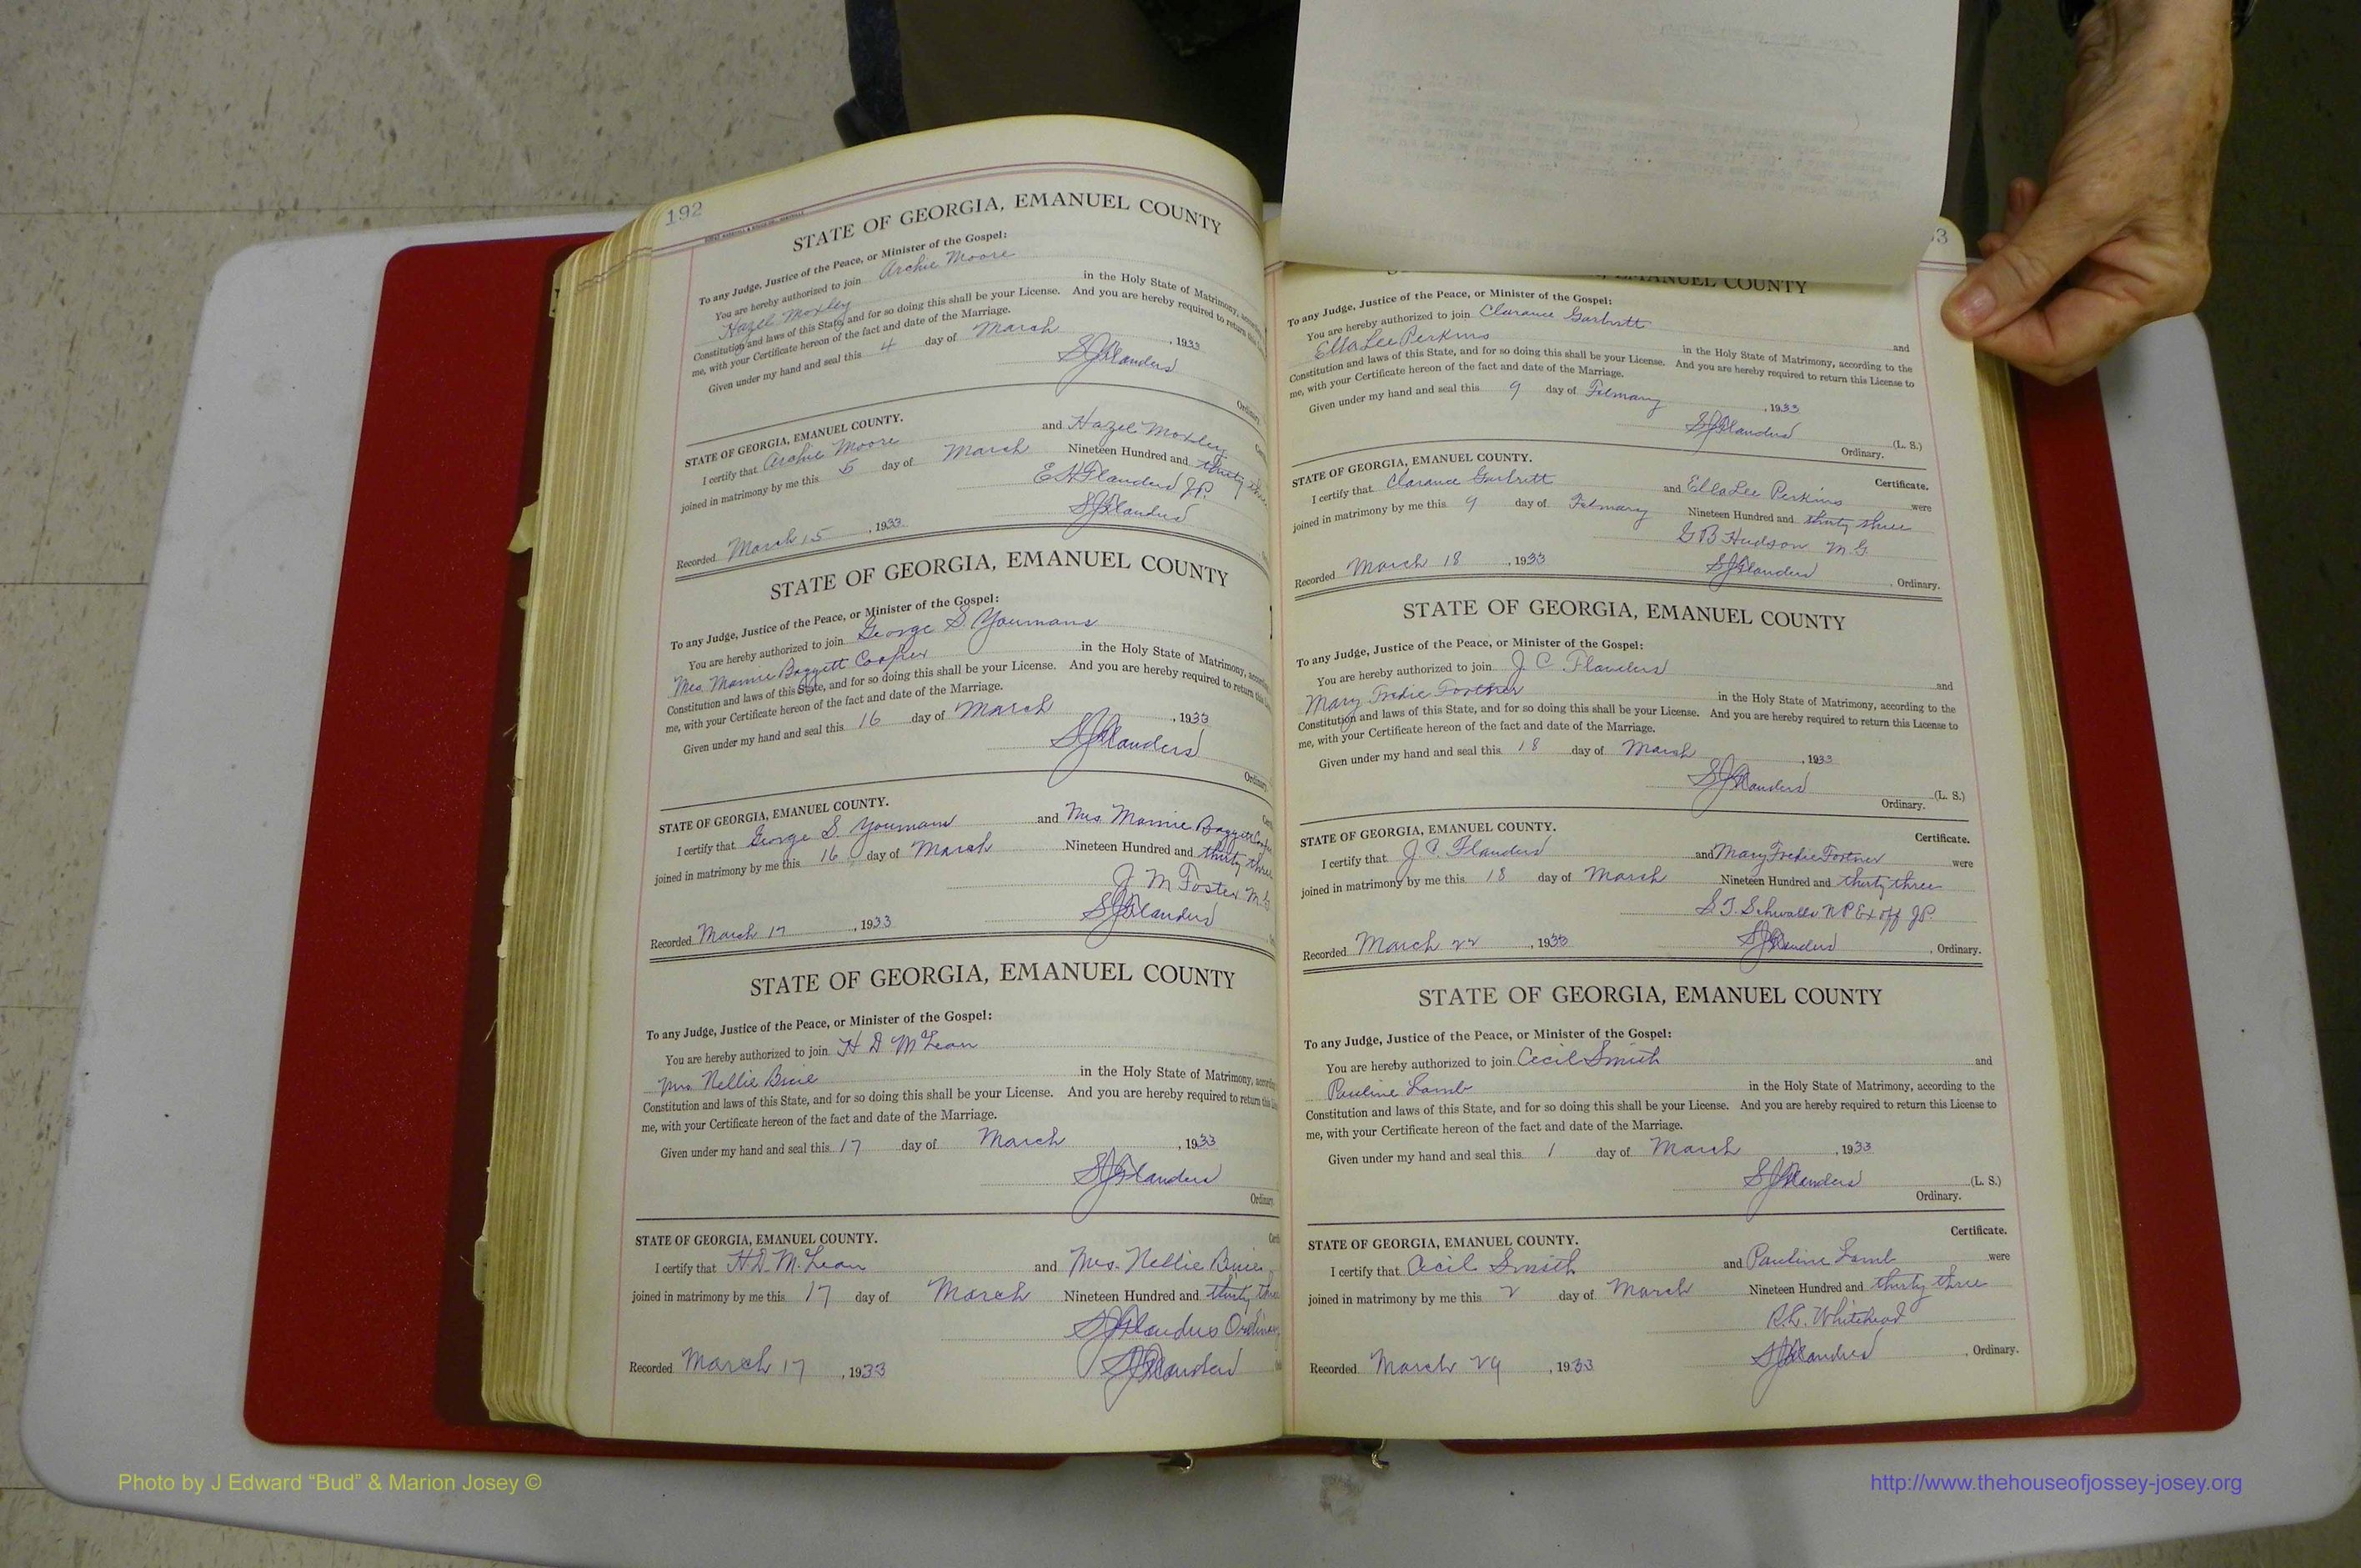 192
STATE OF GEORGIA, EMANUEL COUNTY
To any Judge, Justice of the Peace, or Minister of the Gospel:
You are hereby authorized to join Archie Moore
Hazel Moxley in the Holy State of Matrimony,
Constitution and laws of this State, and for so doing this shall be your License. And you are hereby required to return
me, with your Certificate hereon of the fact and date of the Marriage.
Given under my hand and seal this 4 day of March , 1933
S J Flanders
Ordinary
STATE OF GEORGIA, EMANUEL COUNTY.
I certify that Archie Moore and Hazel Moxley
joined in matrimony by me this 5 day of March Nineteen Hundred and thirty three
E H Flanders J.P.
Recorded March 15 , 1933 S J Flanders
STATE OF GEORGIA, EMANUEL COUNTY
To any Judge, Justice of the Peace, or Minister of the Gospel:
You are hereby authorized to join George S Youmans
Mrs. Mamie Baggett Cooper in the Holy State of Matrimony,
Constitution and laws of this State, and for so doing this shall be your License. And you are hereby required to return
me, with your Certificate hereon of the fact and date of the Marriage.
Given under my hand and seal this 16 day of March , 1933
S J Flanders
Ordinary
STATE OF GEORGIA, EMANUEL COUNTY.
I certify that George S. Youmans and Mrs Mamie Baggett Cooper
joined in matrimony by me this 16 day of March Nineteen Hundred and thirty three
J M Foster M.G
Recorded March 17 , 1933 S J Flanders
STATE OF GEORGIA, EMANUEL COUNTY
To any Judge, Justice of the Peace, or Minister of the Gospel:
You are hereby authorized to join H D McLean
Mrs Nellie in the Holy State of Matrimony,
Constitution and laws of this State, and for so doing this shall be your License. And you are hereby required to return this
me, with your Certificate hereon of the fact and date of the Marriage.
Given under my hand and seal this 17 day of March , 1933
S J Flanders
Ordinary
STATE OF GEORGIA, EMANUEL COUNTY.
I certify that H.D. McLean and Mrs. Nellie
joined in matrimony by me this 17 day of March Nineteen Hundred and thirty three
S J Flanders Ordinary
Recorded March 17 , 1933 S J Flanders
EMANUEL COUNTY
To any Judge, Justice of the Peace, or Minister of the Gospel:
You are hereby authorized to join Clarance Garbutt and
Ella Lee Perkins in the Holy State of Matrimony, according to the
Constitution and laws of this State, and for so doing this shall be your License. And you are hereby required to return this License to
me, with your Certificate hereon of the fact and date of the Marriage.
Given under my hand and seal this 9 day of February , 1933
S J Flanders (L. S.)
Ordinary.
STATE OF GEORGIA, EMANUEL COUNTY. Certificate.
I certify that Clarance Garbutt and Ella Lee Perkins were
joined in matrimony by me this 9 day of February Nineteen Hundred and thirty three
G B Hudson M.G.
Recorded March 18 , 1933 S J Flanders , Ordinary.
STATE OF GEORGIA, EMANUEL COUNTY
To any Judge, Justice of the Peace, or Minister of the Gospel:
You are hereby authorized to join J. C. Flanders and
Mary Fredie Fortner in the Holy State of Matrimony, according to the
Constitution and laws of this State, and for so doing this shall be your License. And you are hereby required to return this License to
me, with your Certificate hereon of the fact and date of the Marriage.
Given under my hand and seal this 18 day of March , 1933
S J Flanders (L. S.)
Ordinary.
STATE OF GEORGIA, EMANUEL COUNTY. Certificate.
I certify that J. C. Flanders and Mary Fredie Fortner were
joined in matrimony by me this 18 day of March Nineteen Hundred and thirty three
S. J. Schwalls N P Ex off J.P.
Recorded March 22 , 1933 S J Flanders , Ordinary.
STATE OF GEORGIA, EMANUEL COUNTY
To any Judge, Justice of the Peace, or Minister of the Gospel:
You are hereby authorized to join Cecil Smith and
Pauline Lamb in the Holy State of Matrimony, according to the
Constitution and laws of this State, and for so doing this shall be your License. And you are hereby required to return this License to
me, with your Certificate hereon of the fact and date of the Marriage.
Given under my hand and seal this 1 day of March , 1933
S J Flanders (L. S.)
Ordinary.
STATE OF GEORGIA, EMANUEL COUNTY. Certificate.
I certify that Cecil Smith and Pauline Lamb were
joined in matrimony by me this 2 day of March Nineteen Hundred and thirty three
R.L. Whitehead
Recorded March 29 , 1933 S J Flanders , Ordinary.
Photo by J Edward “Bud” & Marion Josey ©
http://www.thehouseofjossey-josey.org